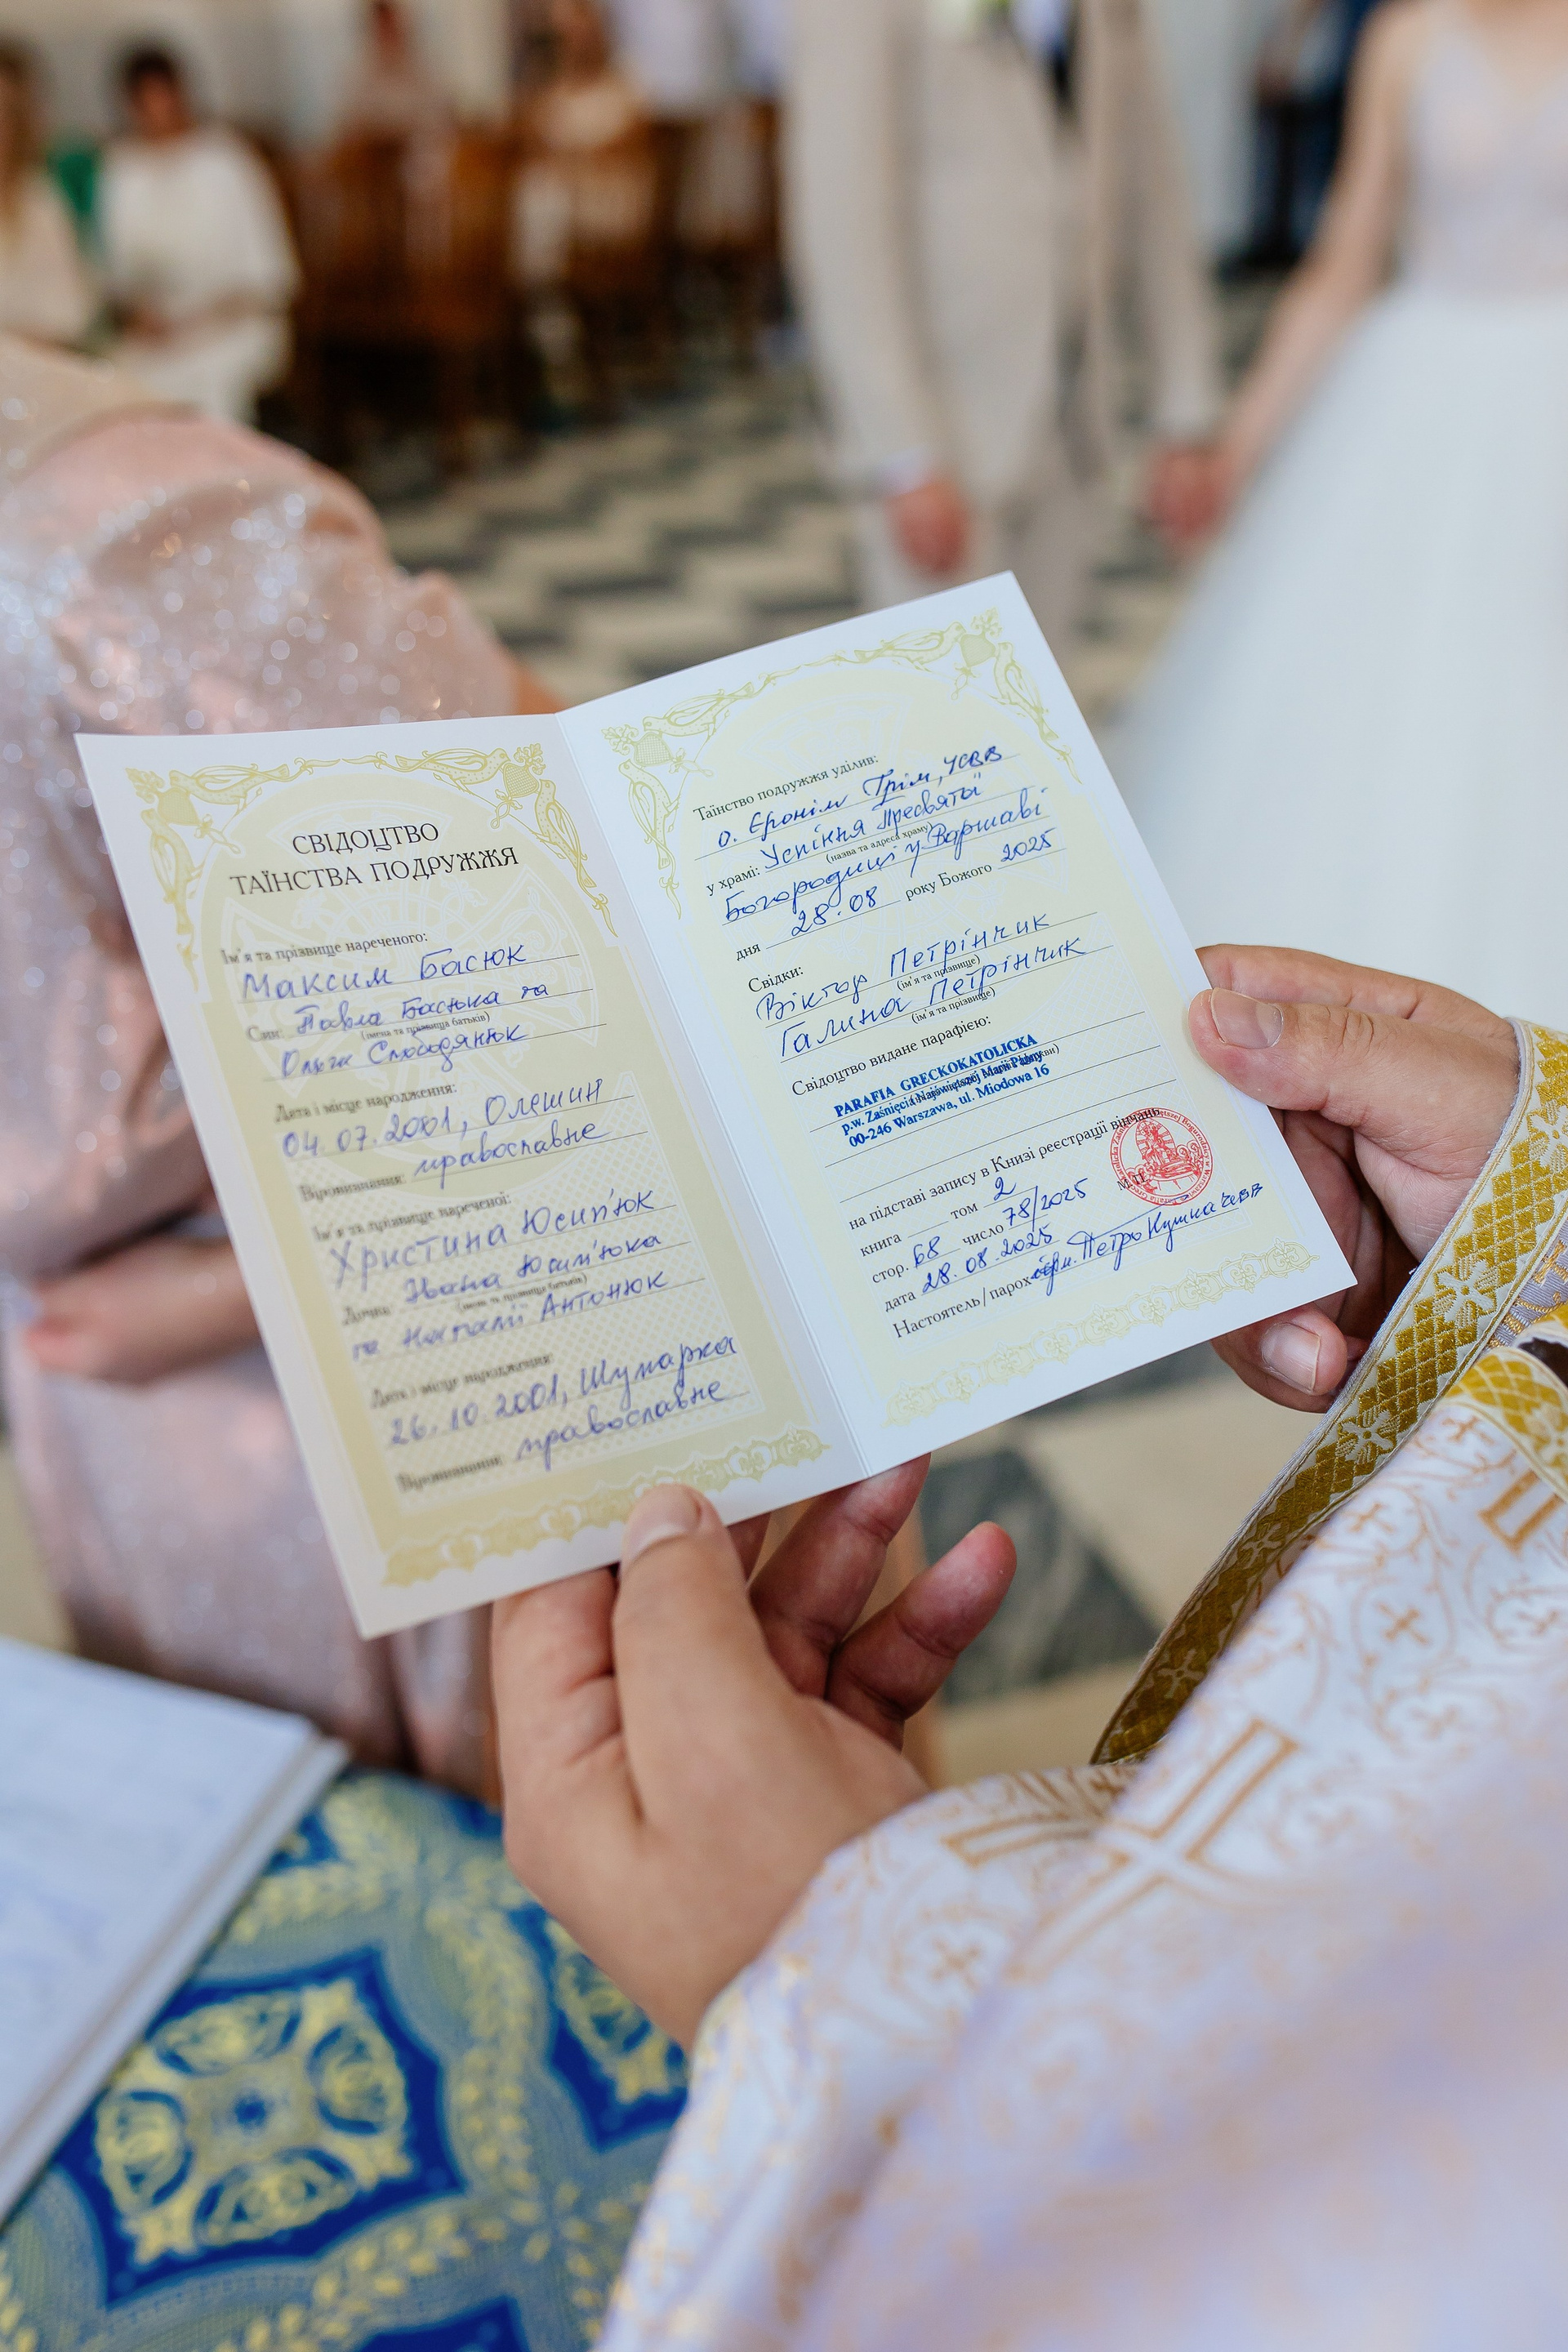 СВІДОЦТВО
ТАЇНСТВА ПОДРУЖЖЯ
Ім'я та прізвище нареченого:
Максим Басюк
Син: Павла Басюка та
(імена та прізвища батьків)
Ольги Слободянюк
Дата і місце народження:
04.07.2001, Олешин
Віровизнання: православне
Ім'я та прізвище нареченої:
Христина Юсип'юк
Дочка: Івана Юсип'юка
(імена та прізвища батьків)
та Наталії Антонюк
Дата і місце народження:
26.10.2001, Шумарка
Віровизнання: православне
Таїнство подружжя уділив:
о. Єронім Грім, ЧСВВ
у храмі: Успіння Пресвятої
(назва та адреса храму)
Богородиці у Варшаві
дня 28.08 року Божого 2025
Свідки:
Віктор Петрінчик
(ім'я та прізвище)
Галина Петрінчик
(ім'я та прізвище)
Свідоцтво видане парафією:
PARAFIA GRECKOKATOLICKA
p.w. Zaśnięcia Najświętszej Marii Panny
00-246 Warszawa, ul. Miodowa 16
на підставі запису в Книзі реєстрації вінчань
книга том 2
стор. 68 число 78/2025
дата 28.08.2025
М.П.
Настоятель/парох Петро Кушка ЧСВВ